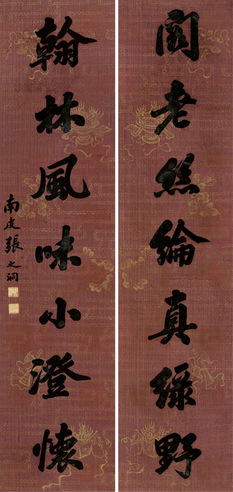 閣老絲綸真綠野
翰林風味小澄懷
南皮張之洞